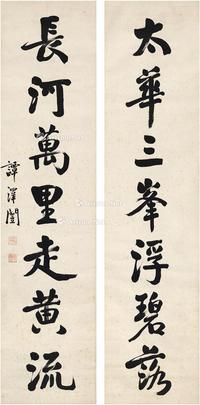 太華三峯浮碧落
長河萬里走黄流
譚澤闓